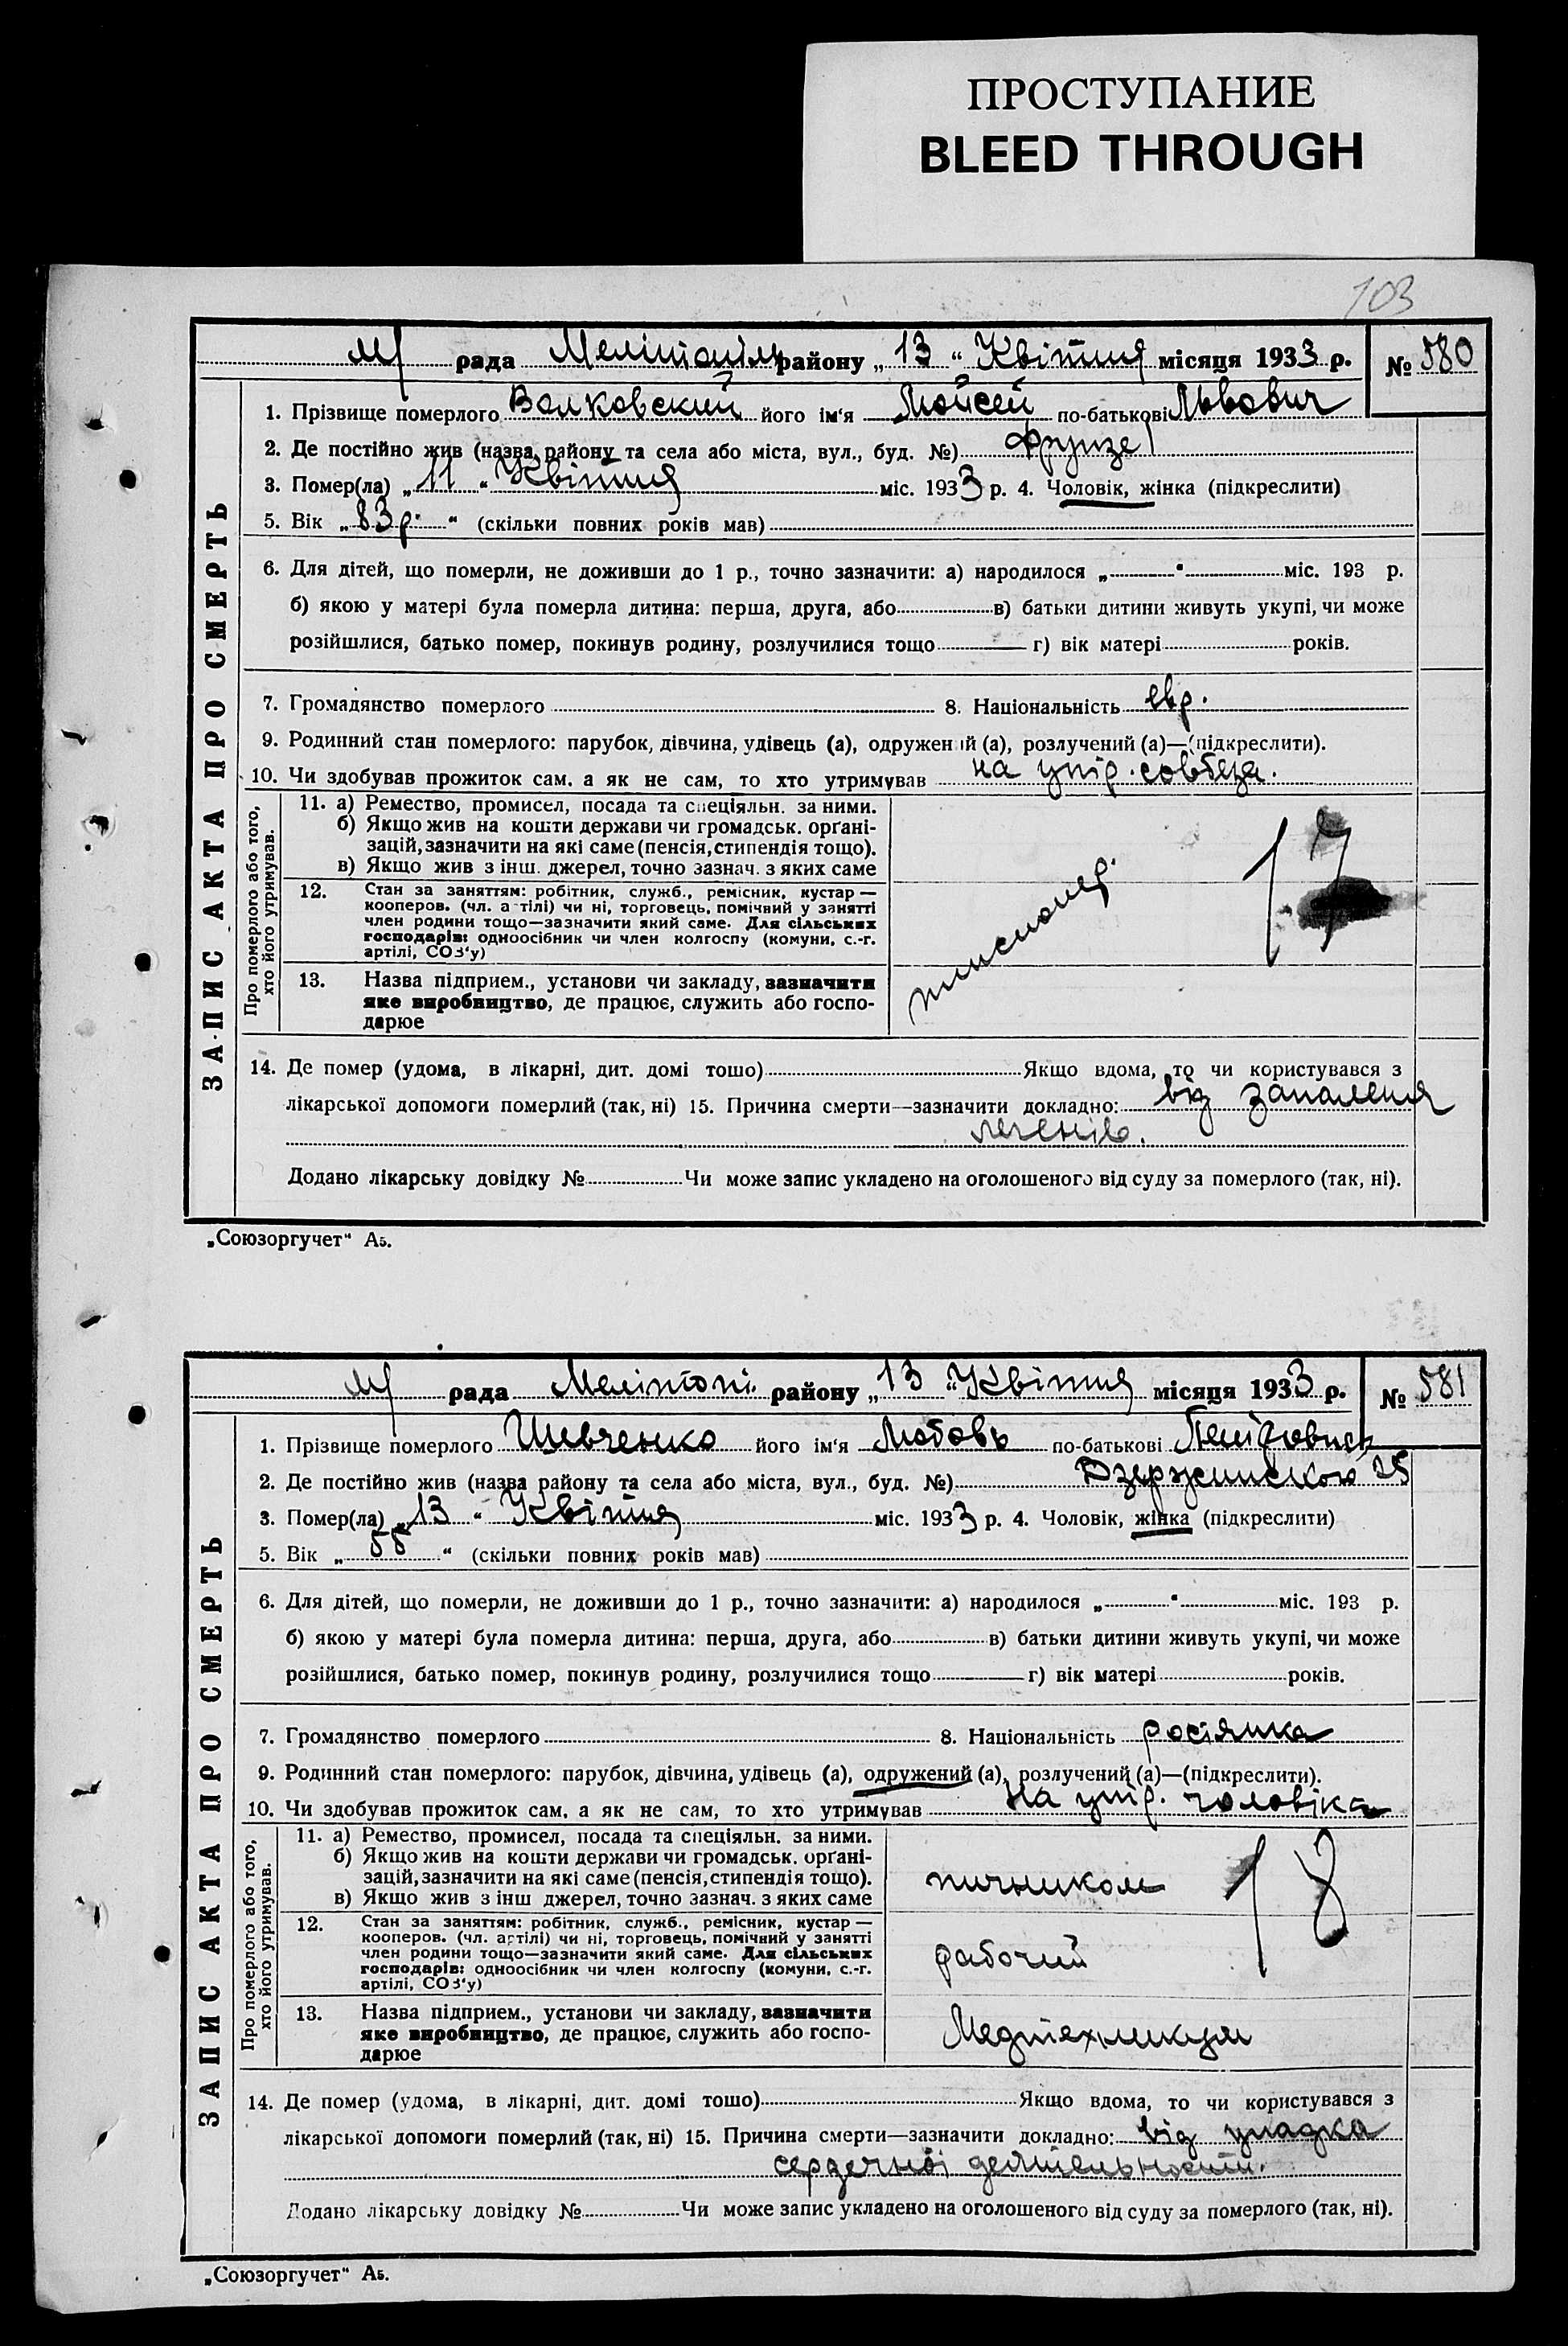 ПРОСТУПАНИЕ
BLEED THROUGH
103
рада району „13“ Квітня місяця 1933 р. № 580
ЗАПИС АКТА ПРО СМЕРТЬ
1. Прізвище померлого Волковский його ім'я Мойсей по-батькові Львович
2. Де постійно жив (назва району та села або міста, вул., буд. №) Фрунзе
3. Помер(ла) „11“ Квітня міс. 1933 р. 4. Чоловік, жінка (підкреслити)
5. Вік „83 р.“ (скільки повних років мав)
6. Для дітей, що померли, не доживши до 1 р., точно зазначити: а) народилося „ “ міс. 193 р.
б) якою у матері була померла дитина: перша, друга, або в) батьки дитини живуть укупі, чи може
розійшлися, батько помер, покинув родину, розлучилися тощо г) вік матері років.
7. Громадянство померлого 8. Національність евр.
9. Родинний стан померлого: парубок, дівчина, удівець (а), одружений (а), розлучений (а)—(підкреслити).
10. Чи здобував прожиток сам, а як не сам, то хто утримував на утр. собеза.
Про померлого або того,
хто його утримував.
11. а) Ремество, промисел, посада та спеціяльн. за ними.
б) Якщо жив на кошти держави чи громадськ. орґані-
зацій, зазначити на які саме (пенсія, стипендія тощо).
в) Якщо жив з інш. джерел, точно зазнач. з яких саме
17
12. Стан за заняттям: робітник, служб., ремісник, кустар —
кооперов. (чл. артілі) чи ні, торговець, помічний у занятті
член родини тощо—зазначити який саме. Для сільських
господарів: одноосібник чи член колгоспу (комуни, с.-г.
артілі, СОЗ'у)
13. Назва підприєм., установи чи закладу, зазначити
яке виробництво, де працює, служить або госпо-
дарює
14. Де помер (удома, в лікарні, дит. домі тошо) Якщо вдома, то чи користувався з
лікарської допомоги померлий (так, ні) 15. Причина смерти—зазначити докладно: від запалення
легенів.
Додано лікарську довідку № Чи може запис укладено на оголошеного від суду за померлого (так, ні).
„Союзоргучет“ А5.
рада Мелітопі. району „13“ Квітня місяця 1933 р. № 581
ЗАПИС АКТА ПРО СМЕРТЬ
1. Прізвище померлого Шевченко його ім'я Любовь по-батькові
2. Де постійно жив (назва району та села або міста, вул., буд. №) Дзержинского 25
3. Помер(ла) „13“ Квітня міс. 1933 р. 4. Чоловік, жінка (підкреслити)
5. Вік „55“ (скільки повних років мав)
6. Для дітей, що померли, не доживши до 1 р., точно зазначити: а) народилося „ “ міс. 193 р.
б) якою у матері була померла дитина: перша, друга, або в) батьки дитини живуть укупі, чи може
розійшлися, батько помер, покинув родину, розлучилися тощо г) вік матері років.
7. Громадянство померлого 8. Національність росіянка
9. Родинний стан померлого: парубок, дівчина, удівець (а), одружений (а), розлучений (а)—(підкреслити).
10. Чи здобував прожиток сам, а як не сам, то хто утримував на утр. чоловіка
Про померлого або того,
хто його утримував.
11. а) Ремество, промисел, посада та спеціяльн. за ними.
б) Якщо жив на кошти держави чи громадськ. орґані-
зацій, зазначити на які саме (пенсія, стипендія тощо).
в) Якщо жив з інш джерел, точно зазнач. з яких саме
пичником 18
12. Стан за заняттям: робітник, служб., ремісник, кустар —
кооперов. (чл. артілі) чи ні, торговець, помічний у занятті
член родини тощо—зазначити який саме. Для сільських
господарів: одноосібник чи член колгоспу (комуни, с.-г.
артілі, СОЗ'у)
рабочий
13. Назва підприєм., установи чи закладу, зазначити
яке виробництво, де працює, служить або госпо-
дарює
Медтехникум
14. Де помер (удома, в лікарні, дит. домі тошо) Якщо вдома, то чи користувався з
лікарської допомоги померлий (так, ні) 15. Причина смерти—зазначити докладно: від упадка
сердечної деятельности.
Додано лікарську довідку № Чи може запис укладено на оголошеного від суду за померлого (так, ні).
„Союзоргучет“ А5.